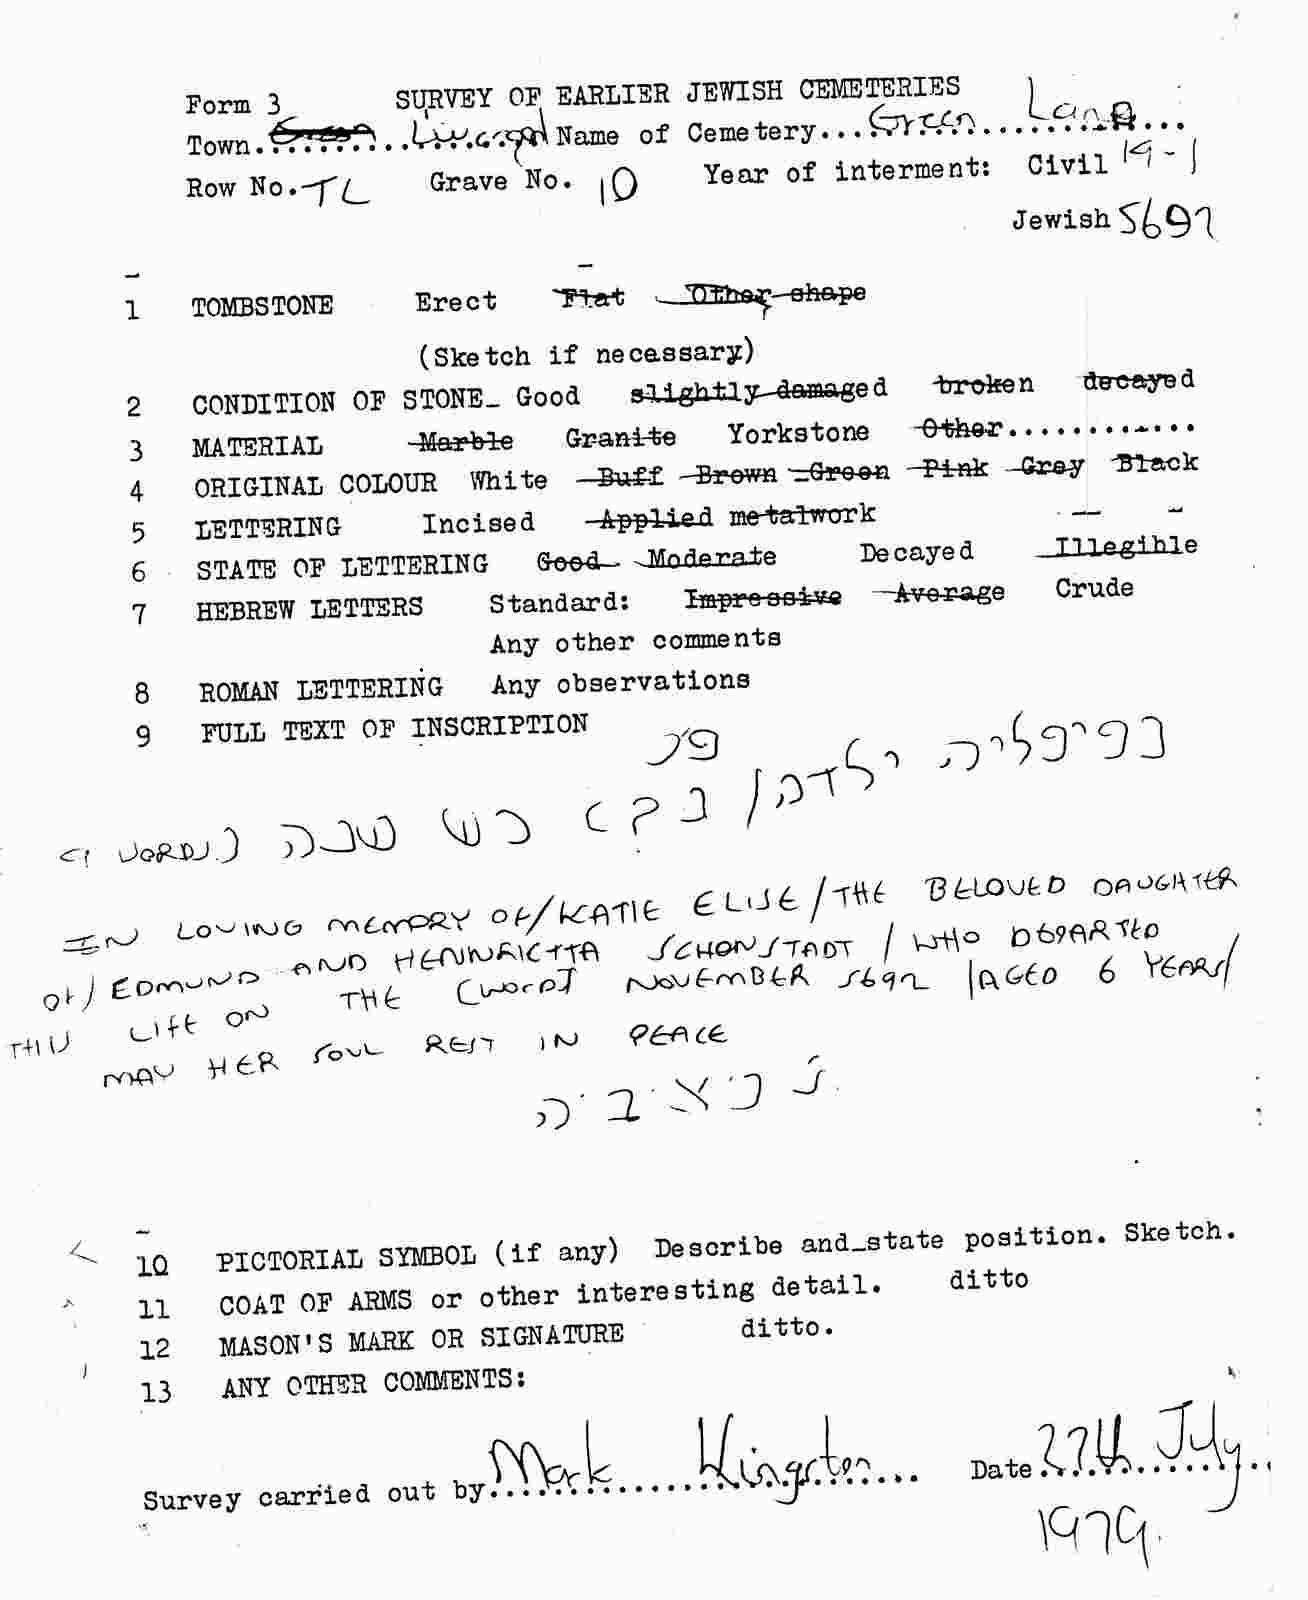 Form 3 SURVEY OF EARLIER JEWISH CEMETERIES
Town.......... Liverpool Name of Cemetery... Green Lane ...
Row No. TL Grave No. 10 Year of interment: Civil 19-1
Jewish 5692
1 TOMBSTONE Erect Flat Other shape
(Sketch if necessary)
2 CONDITION OF STONE_ Good slightly damaged broken decayed
3 MATERIAL Marble Granite Yorkstone Other............
4 ORIGINAL COLOUR White Buff Brown Green Pink Grey Black
5 LETTERING Incised Applied metalwork
6 STATE OF LETTERING Good Moderate Decayed Illegible
7 HEBREW LETTERS Standard: Impressive Average Crude
Any other comments
8 ROMAN LETTERING Any observations
9 FULL TEXT OF INSCRIPTION
פנ
ילדה/
שנה
IN LOVING MEMORY OF/KATIE ELISE/THE BELOVED DAUGHTER
OF/EDMUND AND HENNRIETTA SCHONSTADT/WHO DEPARTED
THIS LIFE ON THE [WORD] NOVEMBER 5692/AGED 6 YEARS/
MAY HER SOUL REST IN PEACE
ת נ צ ב ה
10 PICTORIAL SYMBOL (if any) Describe and_state position. Sketch.
11 COAT OF ARMS or other interesting detail. ditto
12 MASON'S MARK OR SIGNATURE ditto.
13 ANY OTHER COMMENTS:
Survey carried out by Mark Kingston Date 27th July
1979.